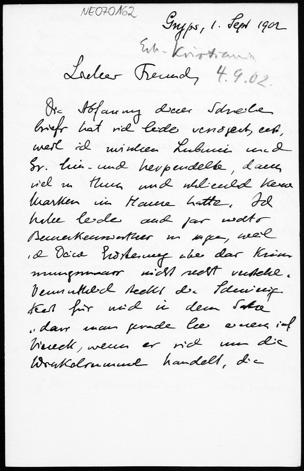 NE070A62
Gryps, 1. Sept 1902
Erh. Kristiania
4.9.02.
Lieber Freund,
Die Absendung dieses Schreibe-
briefs hat sich leider verzögert, erst,
weil ich zwischen Lubmin und
Gr. hin- und herpendelte, dann
viel zu thun und schliesslich keine
Marken im Hause hatte. Ich
habe leider auch gar nichts
Bemerkenswerthes zu sagen, weil
ich Deine Erörterung über das Krüm-
mungsmaass nicht recht verstehe.
Vermuthlich steckt die Schwierig-
keit für mich in dem Satze
„dass man gerade bei einem
Viereck, wenn es sich um die
Winkelsumme handelt, die